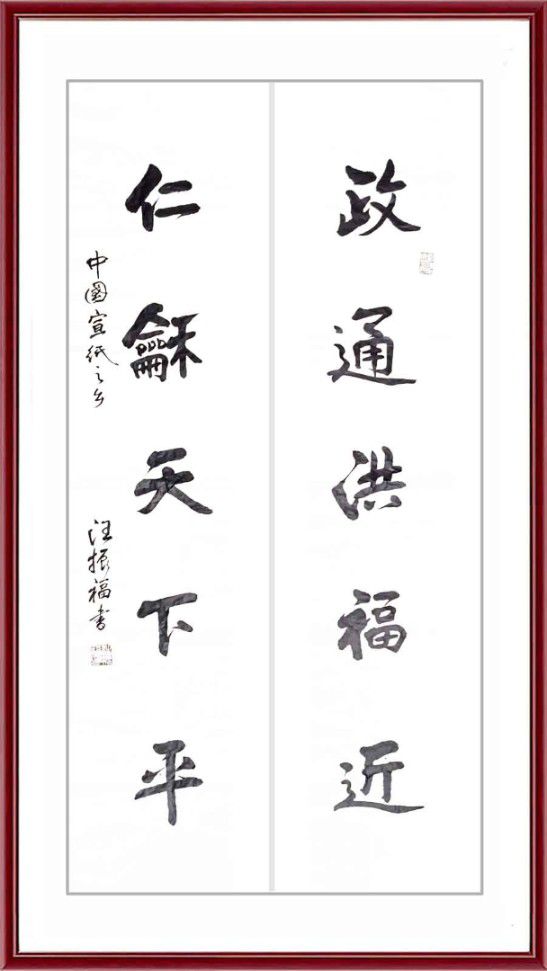 政通洪福近
仁龢天下平
中國宣紙之乡
汪振福书